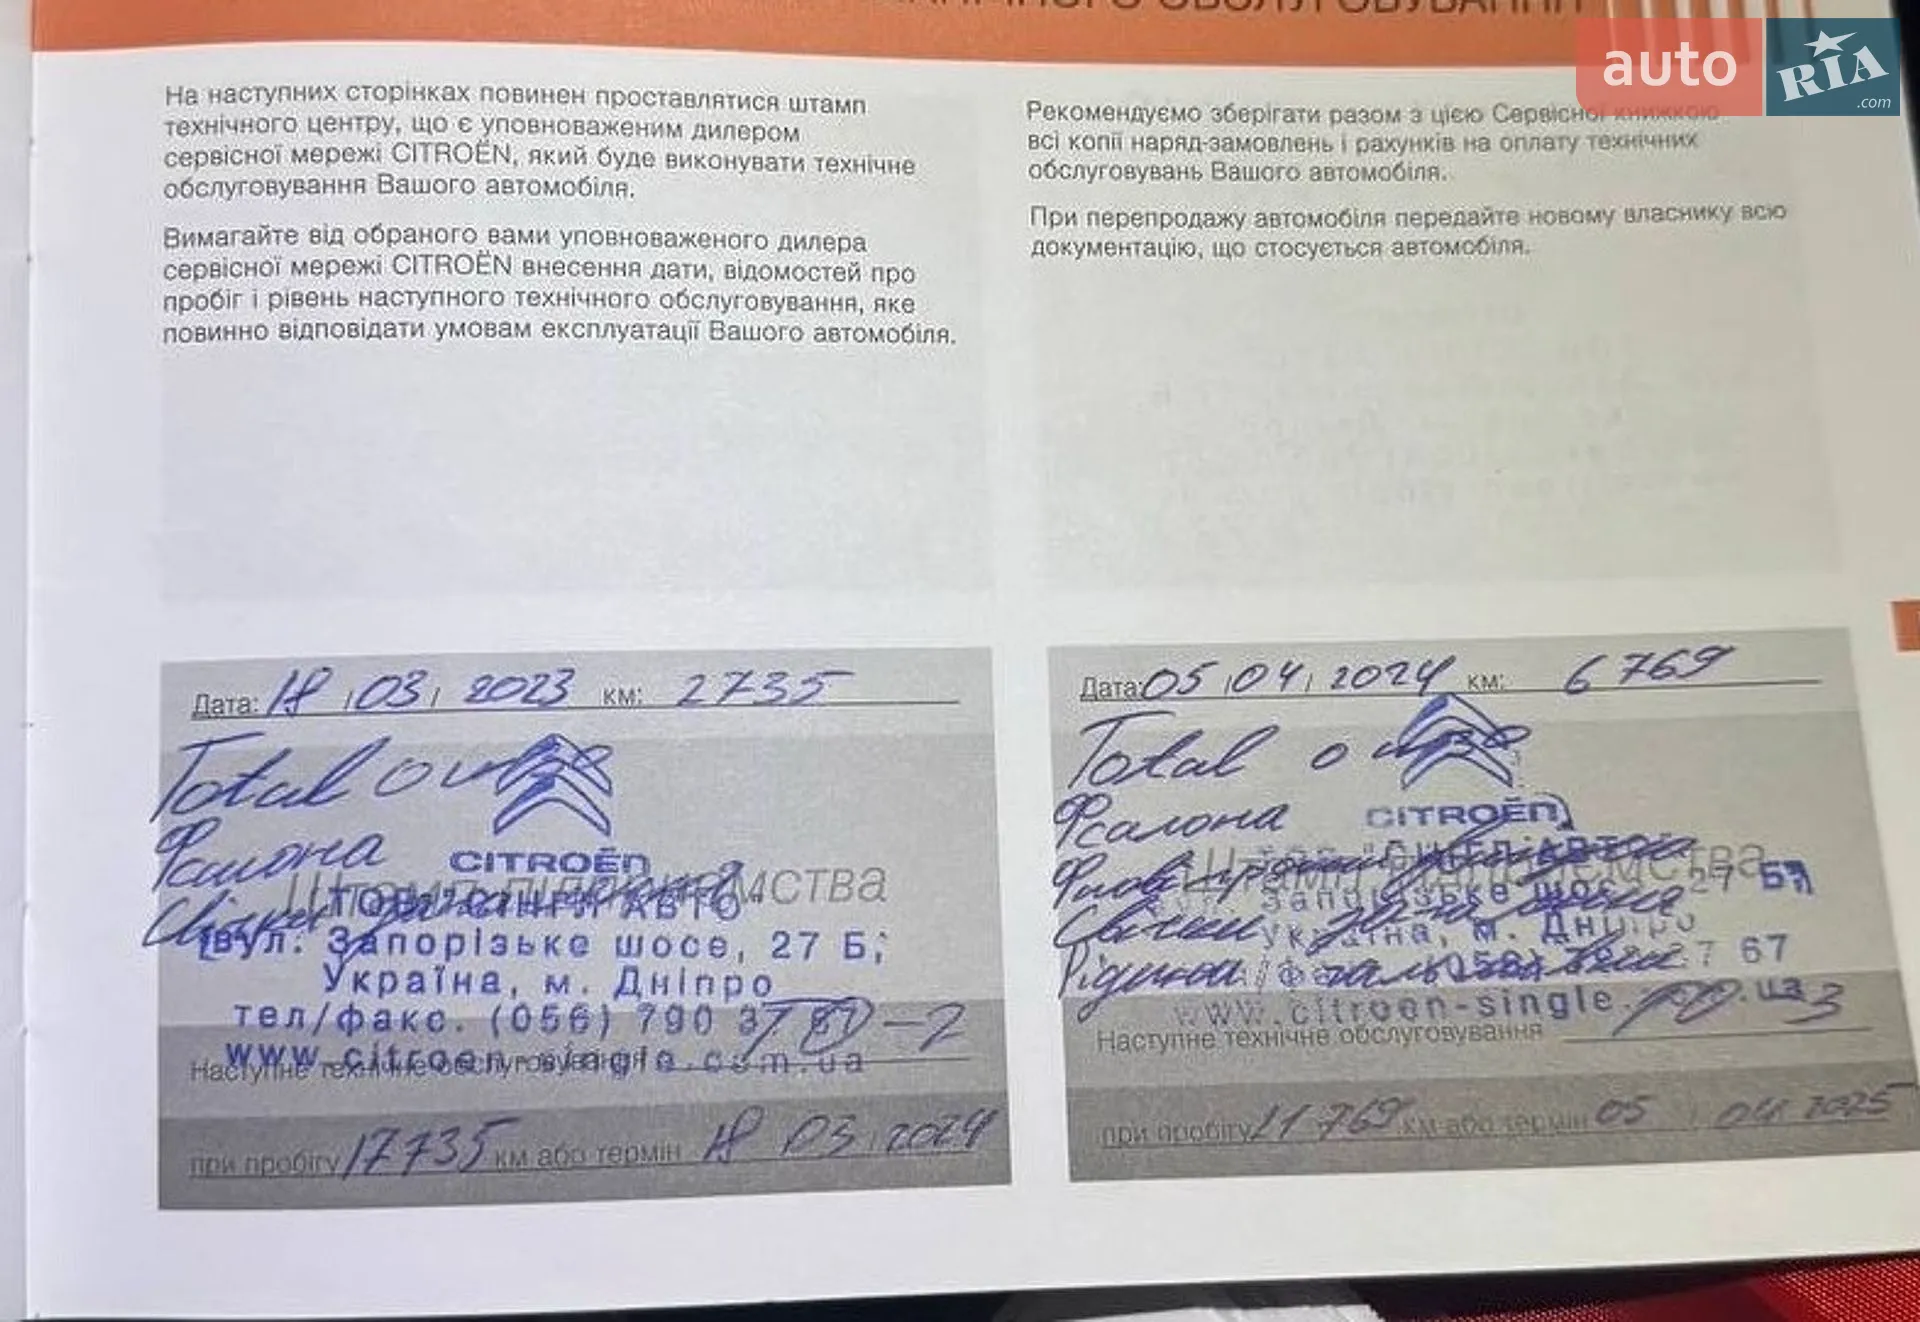 auto RIA.com
На наступних сторінках повинен проставлятися штамп
технічного центру, що є уповноваженим дилером
сервісної мережі CITROËN, який буде виконувати технічне
обслуговування Вашого автомобіля.
Вимагайте від обраного вами уповноваженого дилера
сервісної мережі CITROËN внесення дати, відомостей про
пробіг і рівень наступного технічного обслуговування, яке
повинно відповідати умовам експлуатації Вашого автомобіля.
Рекомендуємо зберігати разом з цією Сервісної книжкою
всі копії наряд-замовлень і рахунків на оплату технічних
обслуговувань Вашого автомобіля.
При перепродажу автомобіля передайте новому власнику всю
документацію, що стосується автомобіля.
Дата: 18 03 2023 км: 2735
Total
CITROËN
Штамп підприємства
вул. Запорізьке шосе, 27 Б,
Україна, м. Дніпро
тел/факс. (056) 790 37 67
www.citroen-single.com.ua
Наступне технічне обслуговування ТО-2
при пробігу 17735 км або термін 18 03 2024
Дата: 05 04 2024 км: 6769
Total
Фсалона
CITROËN
Штамп підприємства
27 Б,
Україна, м. Дніпро
67
www.citroen-single
Наступне технічне обслуговування
при пробігу 11769 км або термін 05 04 2025